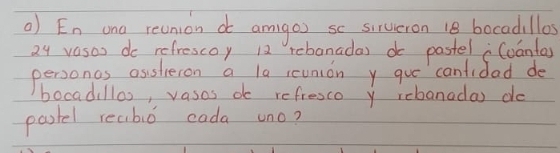 a) En una reunión de amigos se sirvieron 18 bocadillos
24 vasos de refresco y 12 rebanadas de pastel ¿Cuántas
personas asistieron a la reunión y que cantidad de
bocadillos, vasos de refresco y rebanadas de
pastel recibió cada uno?